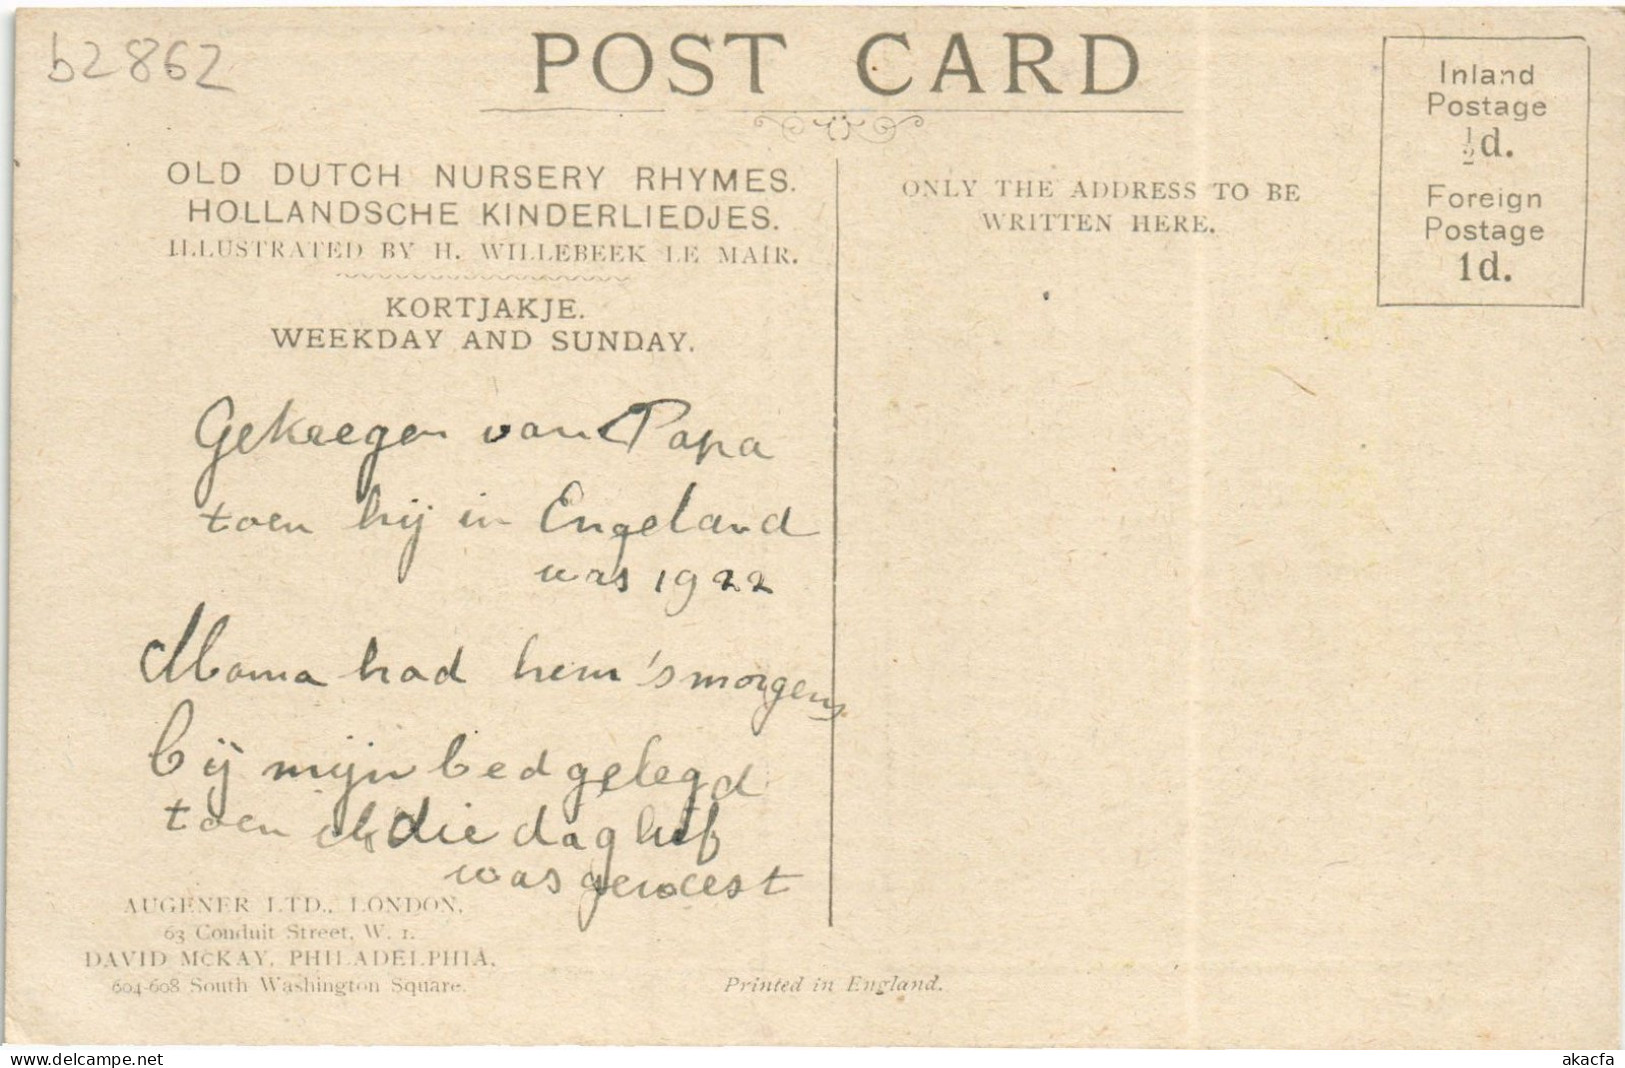 b2862
POST CARD
OLD DUTCH NURSERY RHYMES.
HOLLANDSCHE KINDERLIEDJES.
ILLUSTRATED BY H. WILLEBEEK LE MAIR.
KORTJAKJE.
WEEKDAY AND SUNDAY.
Gekregen van Papa
toen hij in Engeland
was 1922
Mama had hem 's morgens
bij mijn bed gelegd
toen ik die dag lief
was geweest
AUGENER LTD., LONDON.
63 Conduit Street, W. 1.
DAVID McKAY, PHILADELPHIA,
604-608 South Washington Square.
Printed in England.
ONLY THE ADDRESS TO BE
WRITTEN HERE.
Inland
Postage
½d.
Foreign
Postage
1d.
akacfa
www.delcampe.net